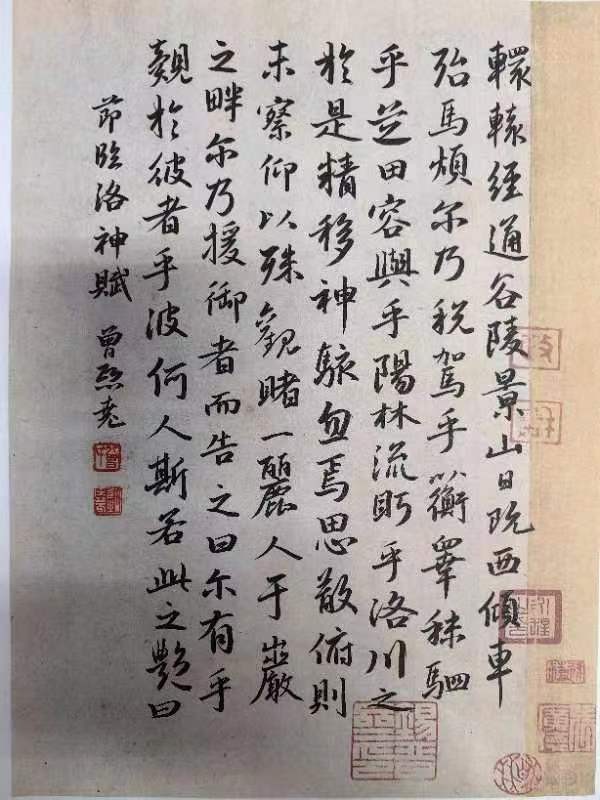 轘轅經通谷陵景山日既西傾車
殆馬煩尔乃税駕乎蘅皋秣駟
乎芝田容與乎陽林流眄乎洛川之
於是精移神駭忽焉思散俯則
未察仰以殊觀睹一麗人于巖
之畔尔乃援御者而告之曰尔有乎
覿於彼者乎彼何人斯若此之艷曰
節臨洛神賦 曾熙